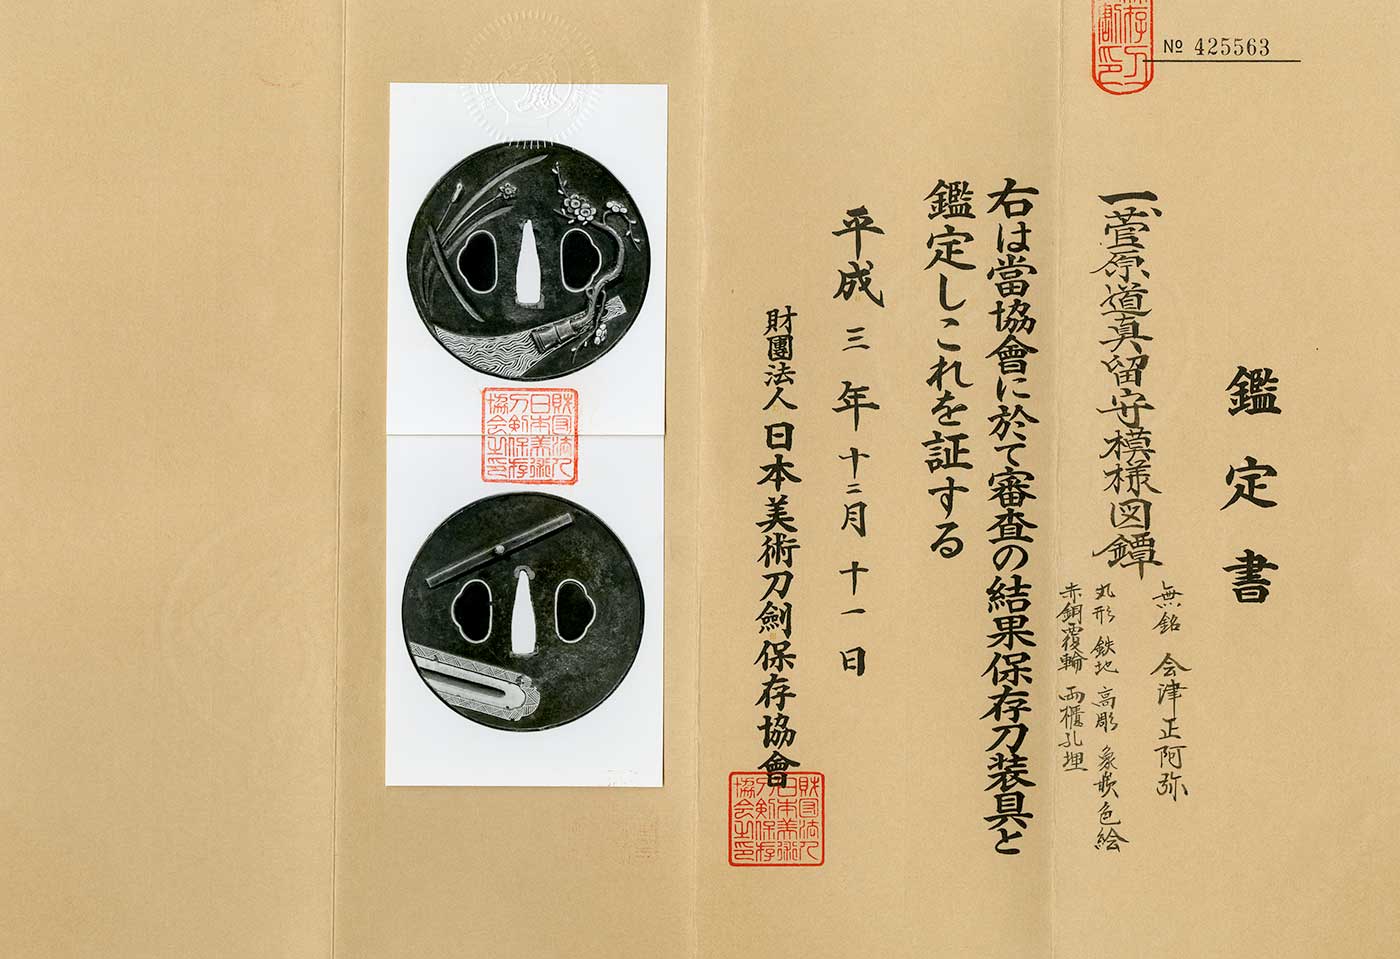 № 425563
鑑定書
一、菅原道真留守模様図鐔
無銘 会津正阿弥
丸形 鉄地 高彫 象嵌色絵
赤銅覆輪 両櫃孔埋
右は當協會に於て審査の結果保存刀装具と
鑑定しこれを証する
平成三年十二月十一日
財團法人日本美術刀劍保存協會
財団法人
日本美術
刀剣保存
協会之印
財団法人
日本美術
刀剣保存
協会之印